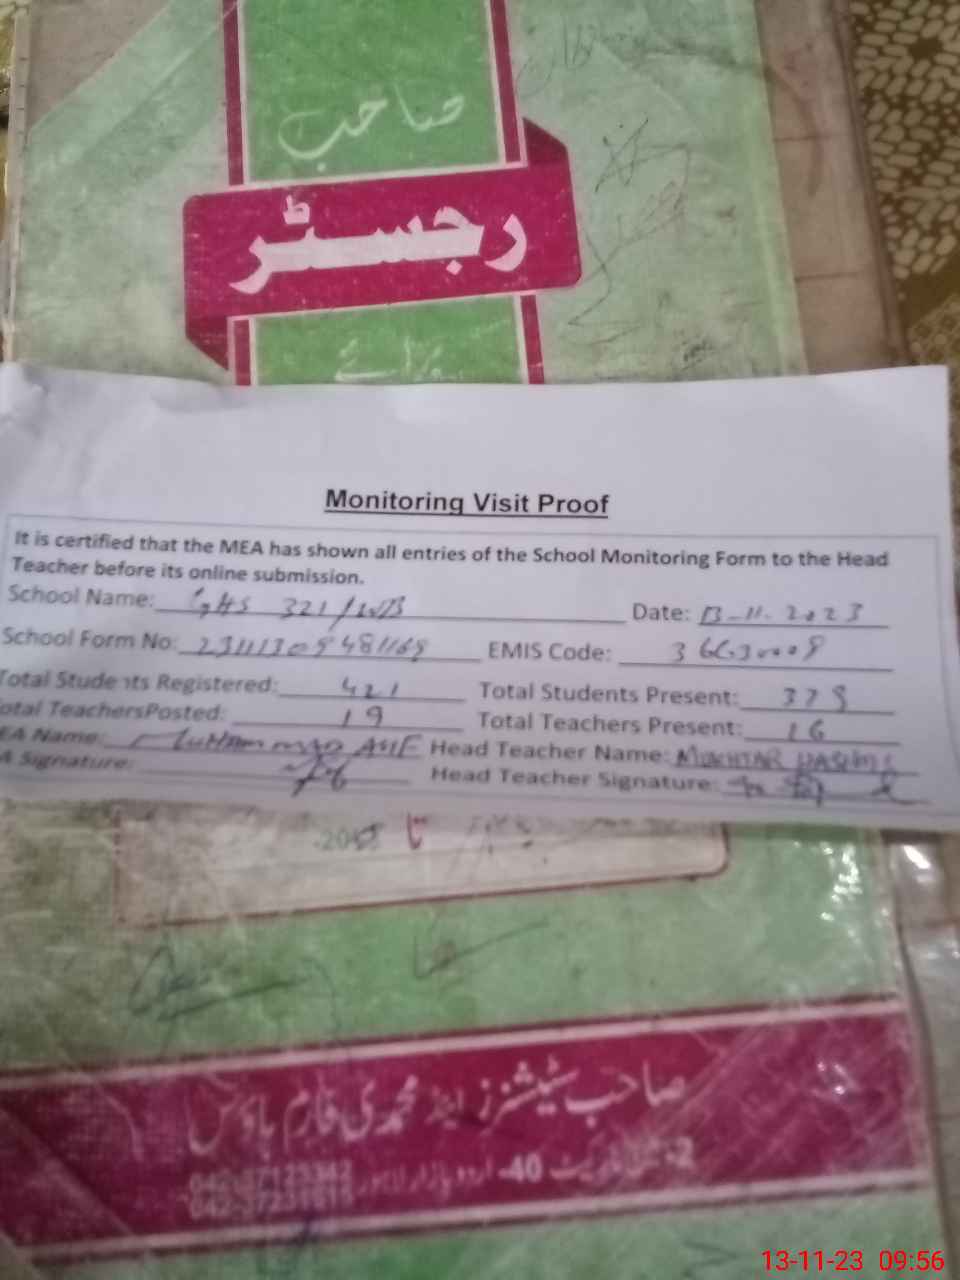 صاحب
رجسٹر
برائے
Monitoring Visit Proof
It is certified that the MEA has shown all entries of the School Monitoring Form to the Head
Teacher before its online submission.
School Name: GHS 321/WB Date: 13-11-2023
School Form No: EMIS Code:
Total Students Registered: 421 Total Students Present: 378
Total TeachersPosted: 19 Total Teachers Present: 16
EA Name: Muhammad Asif Head Teacher Name: MUKHTAR
A Signature: Head Teacher Signature:
تا
صاحب سٹیشنرز اینڈ محمدی فارم ہاؤس
2- 40- اردو بازار لاہور
13-11-23 09:56